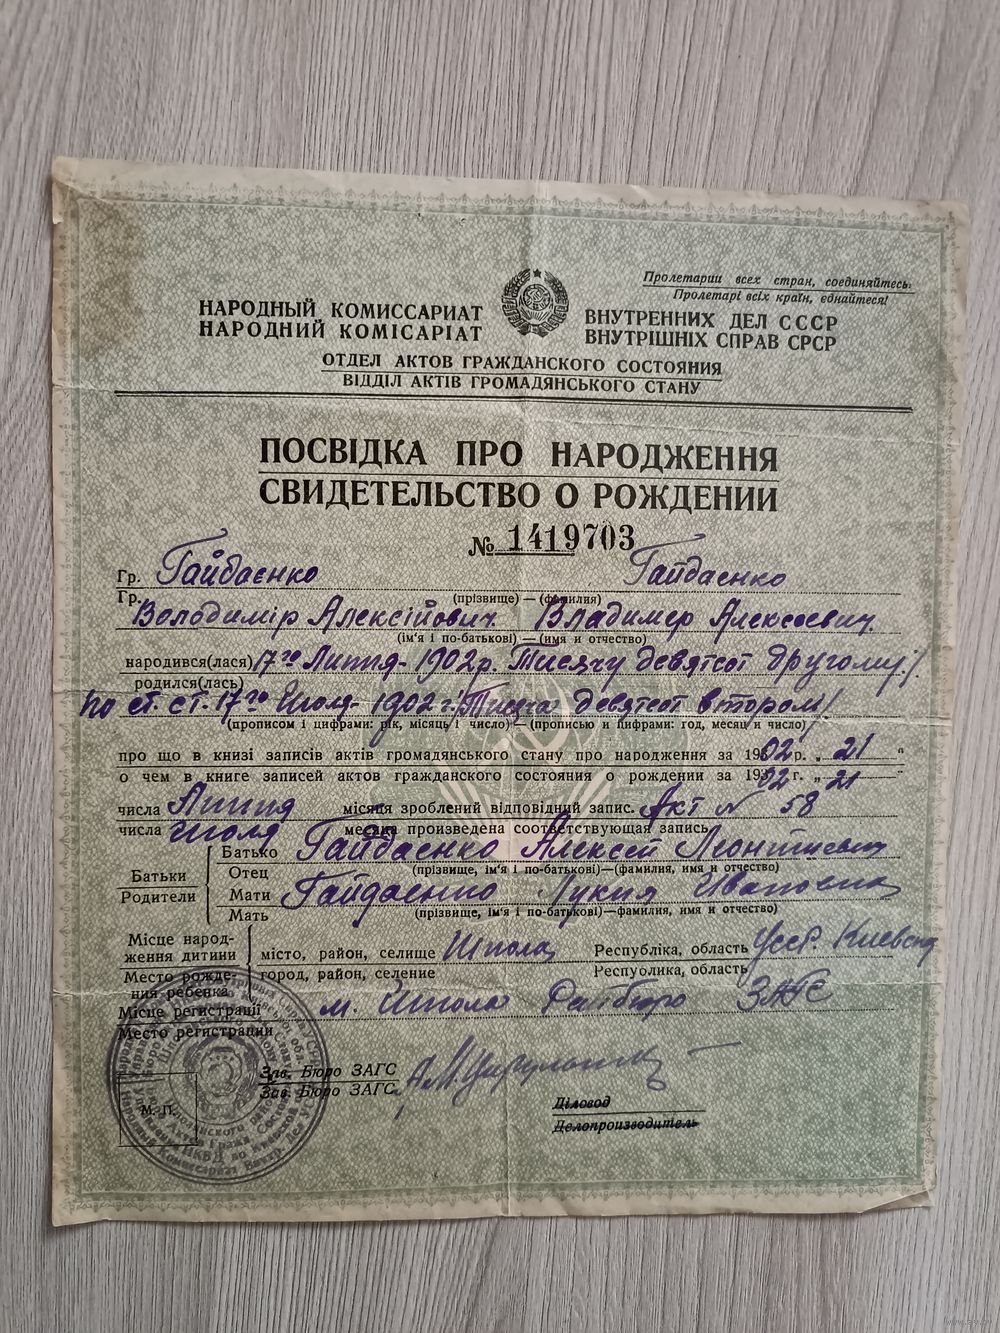 Пролетарии всех стран, соединяйтесь!
Пролетарі всіх країн, єднайтеся!
НАРОДНЫЙ КОМИССАРИАТ ВНУТРЕННИХ ДЕЛ СССР
НАРОДНИЙ КОМІСАРІАТ ВНУТРІШНІХ СПРАВ СРСР
ОТДЕЛ АКТОВ ГРАЖДАНСКОГО СОСТОЯНИЯ
ВІДДІЛ АКТІВ ГРОМАДЯНСЬКОГО СТАНУ
ПОСВІДКА ПРО НАРОДЖЕННЯ
СВИДЕТЕЛЬСТВО О РОЖДЕНИИ
№ 1419703
Гр. Гайдаєнко Гайдаенко
Гр. (прізвище) — (фамилия)
Володимір Алексійович Владимер Алексеевич
(ім'я і по-батькові) — (имя и отчество)
народився(лася) 17го Липня - 1902 р. Тисячу девятсот другому/
родился(лась)
по ст. ст. 17го Июля - 1902 г. /Тисяча девятсот втором/
(прописом і цифрами: рік, місяць і число) — (прописью и цифрами: год, месяц и число)
про що в книзі записів актів громадянського стану про народження за 1902 р. „ 21 "
о чем в книге записей актов гражданского состояния о рождении за 1902 г. „ 21
числа Липня місяця зроблений відповідний запис. Акт № 58
числа Июля месяца произведена соответствующая запись
Батьки Батько Гайдаенко Алексей Леонтиевич
Отец (прізвище, ім'я і по-батькові)—(фамилия, имя и отчество)
Родители Мати Гайдаенко Лукия Ивановна
Мать (прізвище, ім'я і по-батькові)—фамилия, имя и отчество)
Місце народження дитини місто, район, селище Шпола Республіка, область Усср. Киевская
Место рождения ребенка город, район, селение Республика, область
Місце регістрації м. Шпола Райбюро ЗАГС
Место регистрации
Зав. Бюро ЗАГС
Зав. Бюро ЗАГС
Діловод
Делопроизводитель
М. П.